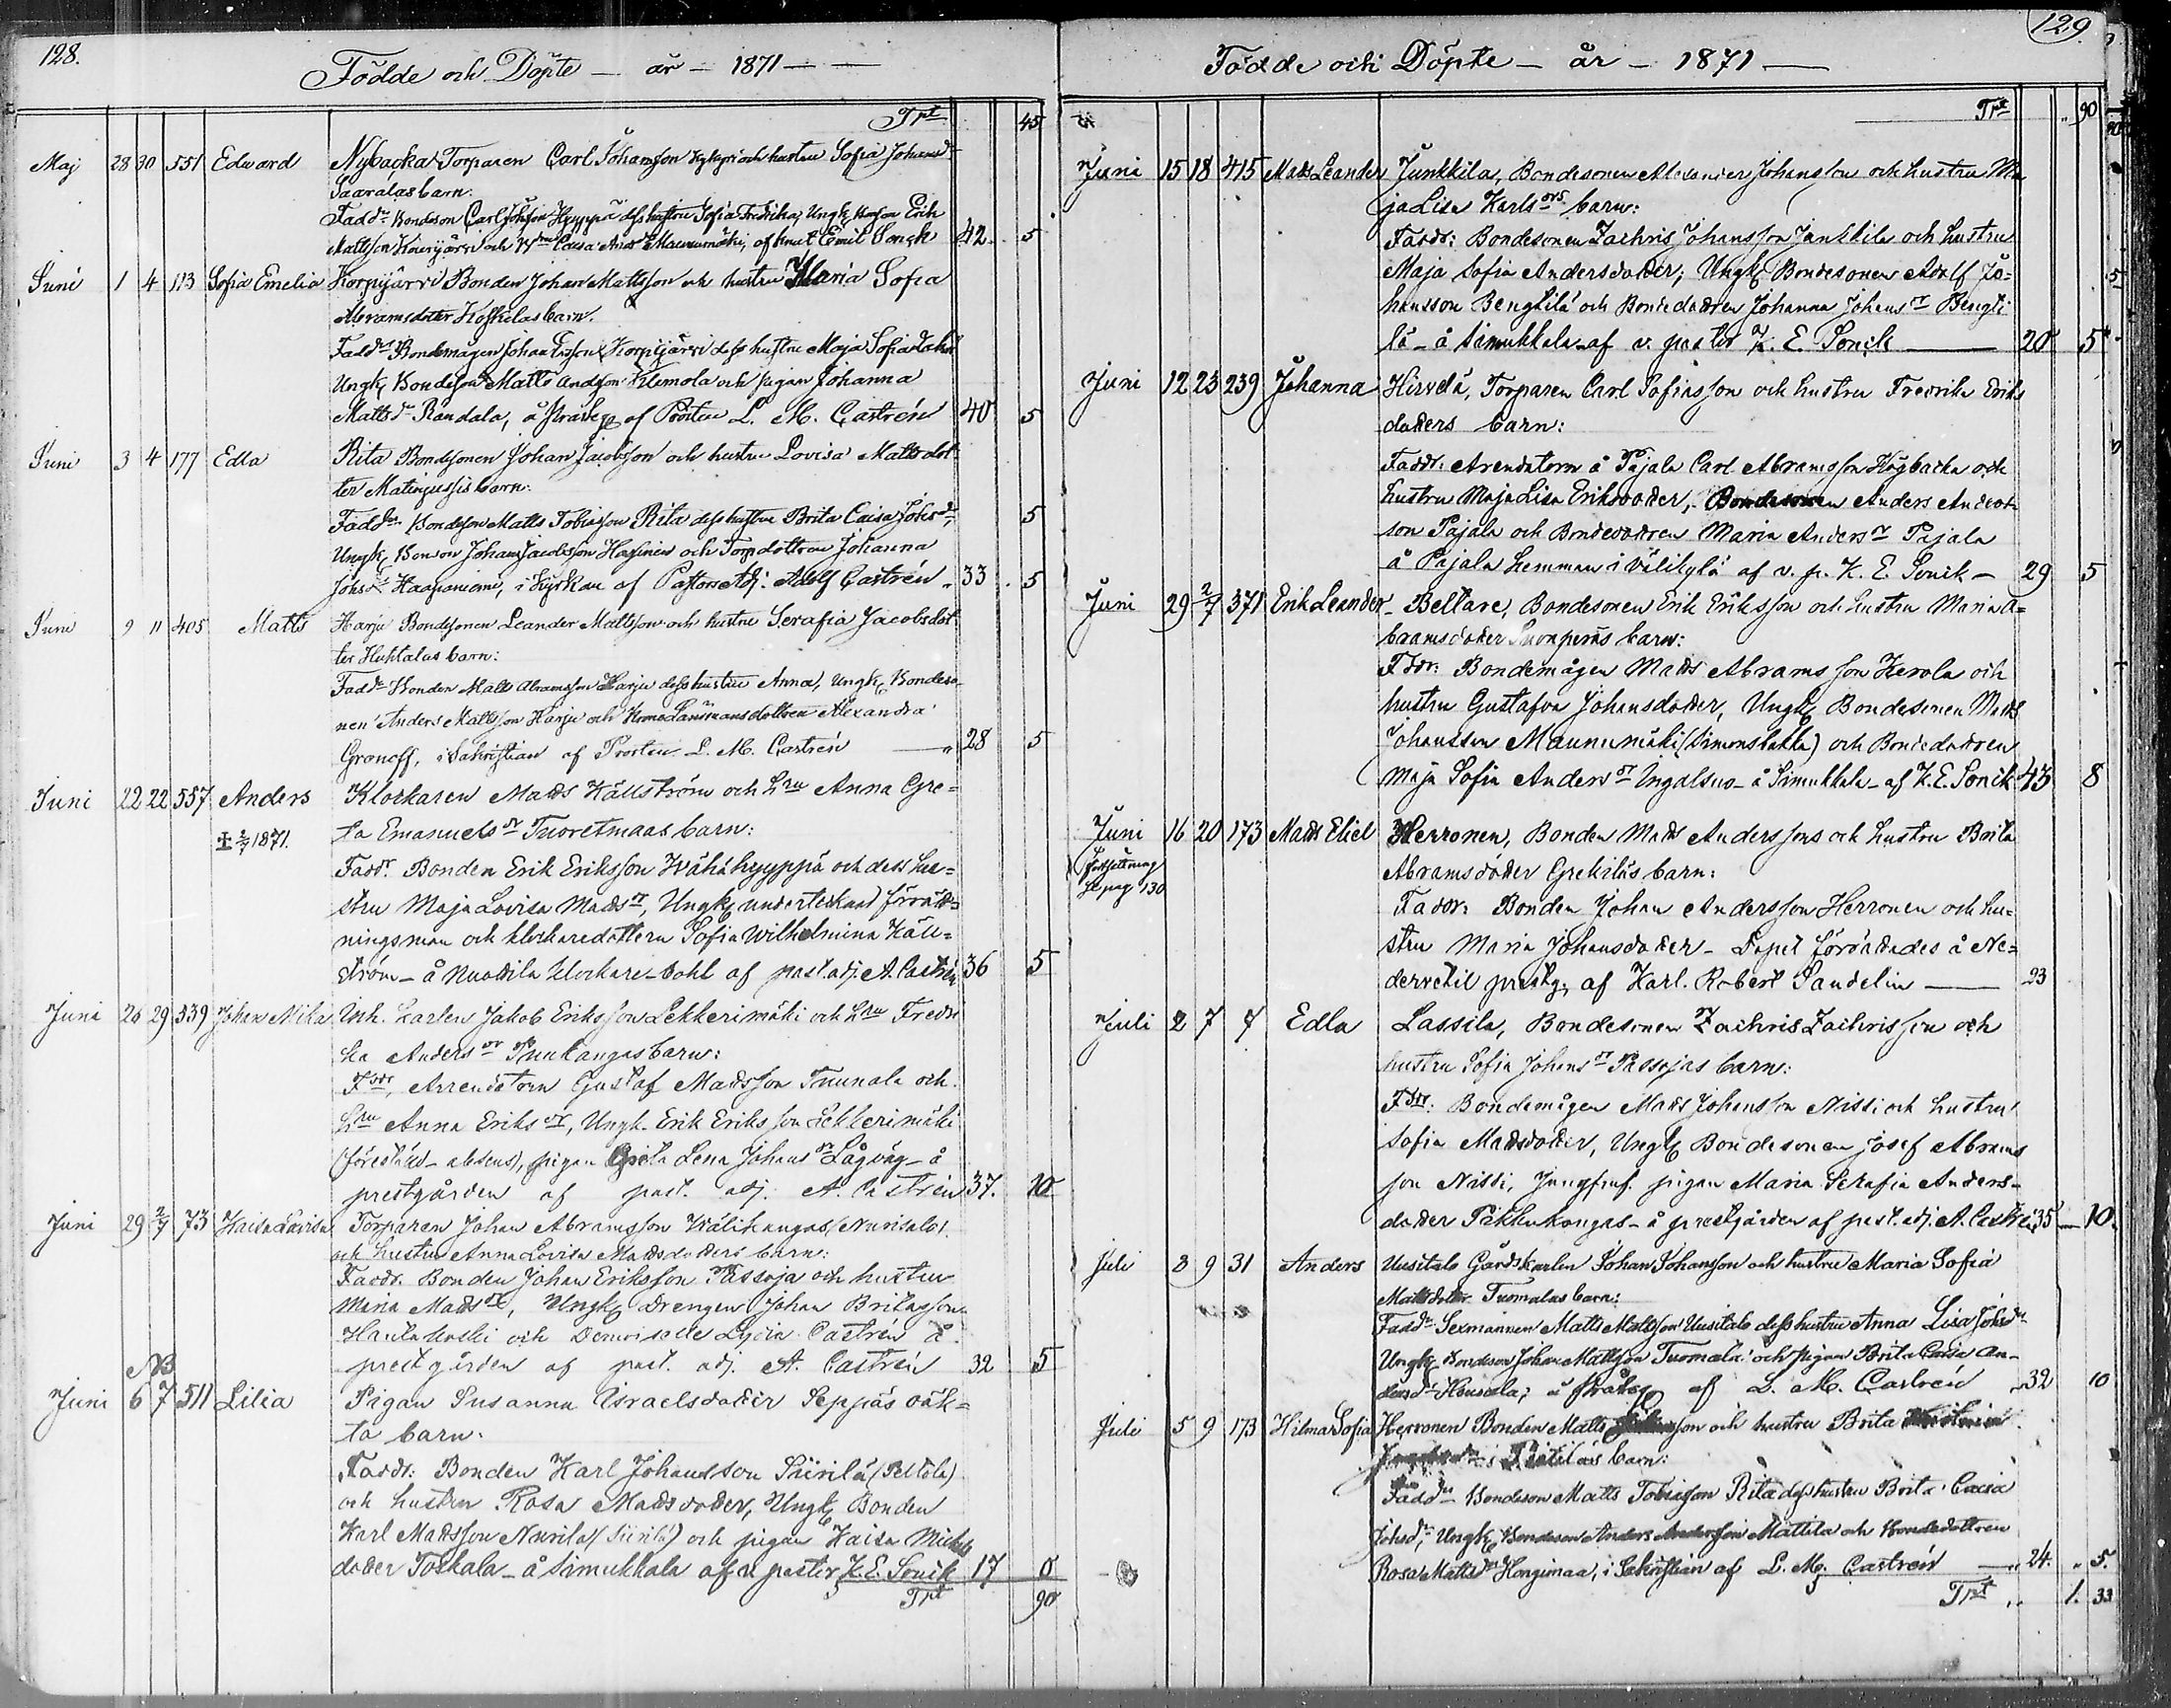 128.
Födde och Döpte — år — 1871 —
Trt 45
Maj 28 30 551 Edward Nybacka Torparen Carl Johansson och hustru Sofia Johansdr
Saaralas barn:
Faddr Bondeson Carl Johsson Hyyppä dess hustru Sofia Fredrika, Ungk Erik
Mattsson och Caisa Andrsdr Maunumäki, af Emil Sonck 42. 5
Juni 1 4 113 Sofia Emelia Korpijärvi Bonden Johan Mattsson och hustru Maria Sofia
Abramsdoter Koskelas barn.
Faddr Bondemågen Johan Ersson Korpijärvi dess hustru Maja Sofia
Ungk Bondeson Matts Andsson Klemola och pigan Johanna
Mattsdr Randala, å af Prosten L. M. Castrén 40 5
Juni 3 4 177 Edla Rita Bondsonen Johan Jacobsson och hustru Lovisa Mattsdot-
ter barn:
Faddr Bondeson Matts Tobiasson Rita dess hustru Brita Caisa Johsdr, 5
Ungk Bonson Johan Jacobsson och Torpdottren Johanna
Johsdr Haapaniemi, i kyrkan af Pastors Adj. Adolf Castrén 33. 5
Juni 9 11 405 Matts Harju Bondsonen Leander Mattsson och hustru Serafia Jacobsdot-
ter Huhtalas barn:
Faddr Bonden Matts Abramsson Harju dess hustru Anna, Ungk Bondeso-
nen Anders Mattsson Harju och KronoLänsmansdottren Alexandra
Gronoff, i Sakristian af Prosten L. M. Castrén — " 28 5
Juni 22 22 557 Anders Klockaren Matts Hällström och hru Anna Gre=
✠ 2/7 1871. ta Emanuelsdr Tuoretmaas barn:
Faddr. Bonden Erik Eriksson Wähähyyppä och dess hu=
stru Maja Lovisa Mattsdr, Ungk undertecknad förrätt=
ningsman och klockaredottern Sofia Wilhelmina Häll=
ström — å Nuottila klockare-bohl af past. adj. A. Castrén 36 5
Juni 26 29 339 Johan Mika Inh. karlen Jakob Eriksson Lekkerimäki och hru Fredri
ka Andersdr Punkangas barn:
Fddr, Arrendatorn Gustaf Mattsson Tuunala och
hru Anna Eriksdr, Ungk. Erik Eriksson Lekkerimäki
(föreståed. absens), pigan Greta Lena Johansdr Lågväg — å
prestgården af past. adj. A. Castrén 37. 10
Juni 29 2/7 73 Kaisa Lovisa Torparen Johan Abramsson Wälikangas (Nurisalo)
och hustru Anna Lovisa Mattsdotters barn:
Faddr. Bonden Johan Eriksson Passoja och hustru
Maria Mattsdr, Ungk drengen Johan Britasson
Hautakoski och Demoiselle Lydia Castrén å
prestgården af past. adj. A. Castrén 32 5
NB
Juni 6 7 511 Lilia Pigan Susanna Israelsdotter Seppäs oäk=
ta barn.
Faddr: Bonden Karl Johansson Siirilä (Peltola)
och hustru Rosa Mattsdotter, Ungk Bonden
Karl Mattsson Nurila (Siirilä) och pigan Kaisa Mickels
dotter Toskala — å Simukkala af v. pastor K. E. Sonck 17 0
Trt 90
129.
Födde och Döpte — år — 1871 —
Trt " 90
Juni 15 18 415 Matts Leander Junkkila, Bondesonen Alexander Johansson och hustru Ma
ja Lisa Karlsdrs barn:
Faddr: Bondesonen Zachris Johansson Junkkila och hustru
Maja Sofia Andersdotter, Ungk Bondesonen Adolf Jo=
hansson Bengtilä och Bondedottren Johanna Johansdr Bengti
lä — å Simukkala af v. pastor K. E. Sonck — 20 5
Juni 12 23 239 Johanna Hirvelä, Torparen Carl Sofiasson och hustru Fredrika Eriks
dotters barn:
Faddr. Arendatorn å Pajala Carl Abramsson Högbacka och
hustru Maja Lisa Eriksdotter, Bondesonen Anders Anders
son Pajala och Bondedottren Maria Andersdr Pajala
å Pajala hemman i Välikylä af v. p. K. E. Sonck — 29 5
Juni 29 2/7 371 Erik Leander Beltare, Bondesonen Erik Eriksson och hustru Maria A=
bramsdotter Suonperäs barn:
Fddr: Bondemågen Matts Abramsson Kerola och
hustru Gustafva Johansdotter, Ungk Bondesonen Matts
Johansson Maunumäki (Simonsbakka) och Bondedottren
Maja Sofia Andersdr Ingalsuo — å Simukkala — af K. E. Sonck 43 8
Juni 16 20 173 Matts Eliel Herronen, Bonden Matts Anderssons och hustru Brita
fortsättning
se pag 130 Abramsdotter Grekiläs barn:
Faddr: Bonden Johan Andersson Herronen och hu=
stru Maria Johansdotter — Dopet förrättades å Ne=
dervetil prestg. af Karl. Robert Sandelin — 23
Juli 2 7 7 Edla Lassila, Bondesonen Zachris Zachrisson och
hustru Sofia Johansdr Passojas barn:
Fddr: Bondemågen Matts Johansson Nissi och hustru
Sofia Mattsdotter, Ungk Bondesonen Josef Abrams
son Nissi, Jungfruf. pigan Maria Serafia Anders-
dotter Pikkukangas — å prestgården af past. adj. A. Castrén 35 — 10.
Juli 3 9 31 Anders Uusitalo Gårdskarlen Johan Johansson och hustru Maria Sofia
Mattsdoter Tuomalas barn:
Faddr Sexmannen Matts Mattsson Uusitalo dess hustru Anna Lisa Johsdr
Ungk Bondeson Johan Mattsson Tuomala och pigan Brita Caisa An-
dersdr af L. M. Castrén 32 10
Juli 5 9 173 Hilma Sofia Herronen Bonden Matts och hustru Brita
barn:
Faddr Bondeson Matts Tobiasson Rita dess hustru Brita Caisa
Johsdr, Ungk Bondeson Anders Andersson Mattila och Bondedottren
Rosa Mattsdr Hongimaa, i Sakristian af L. M. Castrén — " 24. " 5.
Trt " 1. 33